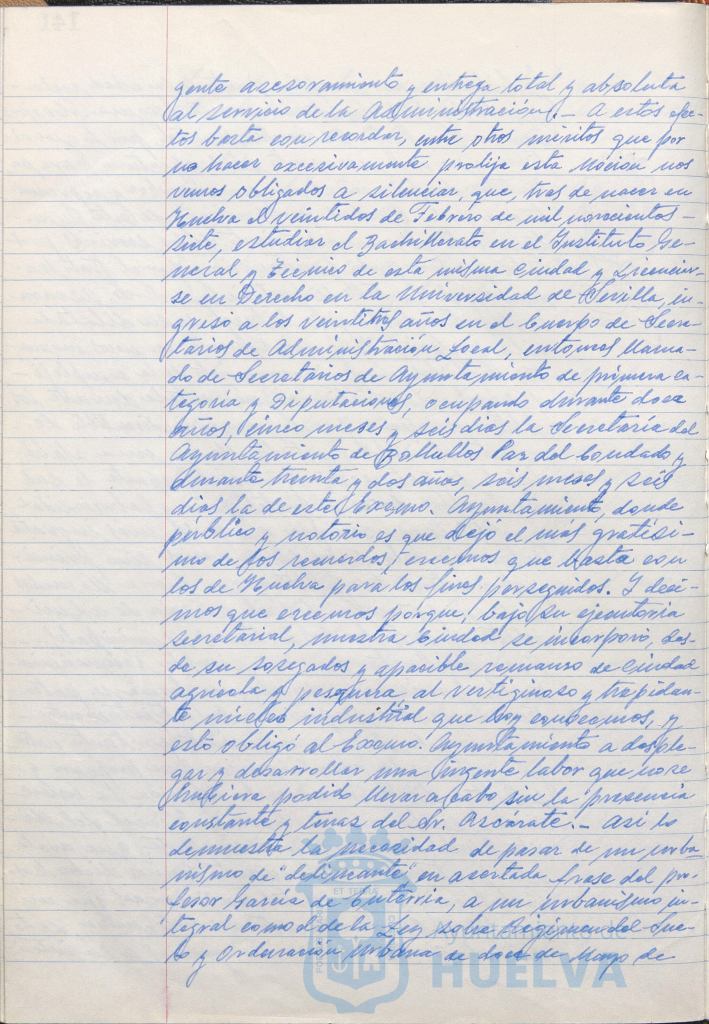 gente asesoramiento y entrega total y absoluta
al servicio de la Administración.- A estos efec-
tos basta con recordar, entre otros méritos que por
no hacer excesivamente prolija esta Moción nos
vemos obligados a silenciar, que, tras de nacer en
Huelva el veintidos de Febrero de mil novecientos-
siete, estudiar el Bachillerato en el Instituto Ge-
neral y Técnico de esta misma Ciudad y Licenciar-
se en Derecho en la Universidad de Sevilla, in-
gresó a los veintitres años en el Cuerpo de Secre-
tarios de Administración Local, entonces llama-
do de Secretarios de Ayuntamiento de primera ca-
tegoría y Diputaciones, ocupando durante doce
años, cinco meses y seis dias la Secretaría del
Ayuntamiento de Bollullos Par del Condado y
durante treinta y dos años, seis meses y seis
dias la de este Excmo. Ayuntamiento, donde
público y notorio es que dejó el más gratísi-
mo de los recuerdos, creemos que basta con
los de Huelva para los fines perseguidos. Y deci-
mos que creemos porque, bajo su ejecutoria
secretarial, nuestra Ciudad se incorporó, des-
de su sosegados y apacible remanso de ciudad
agrícola y pesquera al vertiginoso y trepidan-
te núcleo industrial que hoy conocemos, y
esto obligó al Excmo. Ayuntamiento a desple-
gar y desarrollar una ingente labor que no se
hubiera podido llevar a cabo sin la presencia
constante y tenaz del Sr. Azcárate.- Así lo
demuestra la necesidad de pasar de un urba-
nismo de "delineante" en acertada frase del pro-
fesor García de Enterría, a un urbanismo in-
tegral como el de la Ley sobre Régimen del Sue-
lo y Ordenación Urbana de doce de Mayo de
Ayuntamiento de
HUELVA